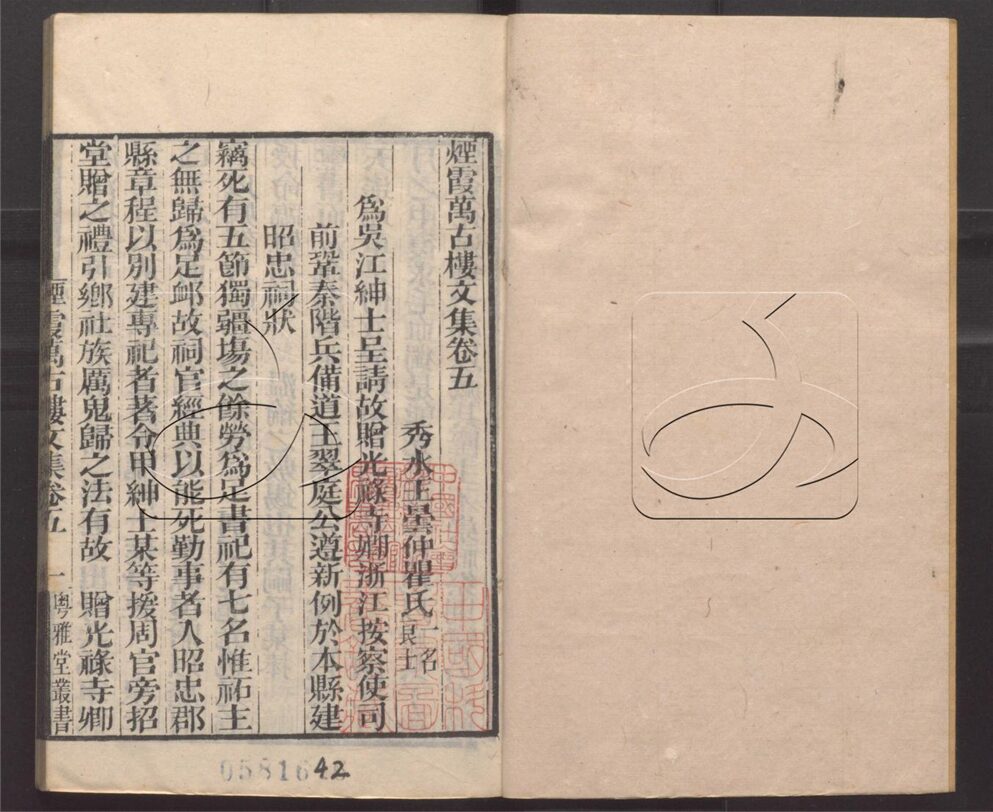 煙霞萬古樓文集卷五
秀水王曇仲瞿氏一名良士
爲吳江紳士呈請故贈光祿寺卿浙江按察使司
前鞏秦階兵備道王翠庭公遵新例於本縣建
昭忠祠狀
竊死有五節獨疆場之餘勞爲足書祀有七名惟祏主
之無歸爲足卹故祠官經典以能死勤事者入昭忠郡
縣章程以別建專祀者著令甲紳士某等援周官旁招
堂贈之禮引鄉社族厲鬼歸之法有故 贈光祿寺卿
煙霞萬古樓文集卷五 一 粵雅堂叢書
0581642